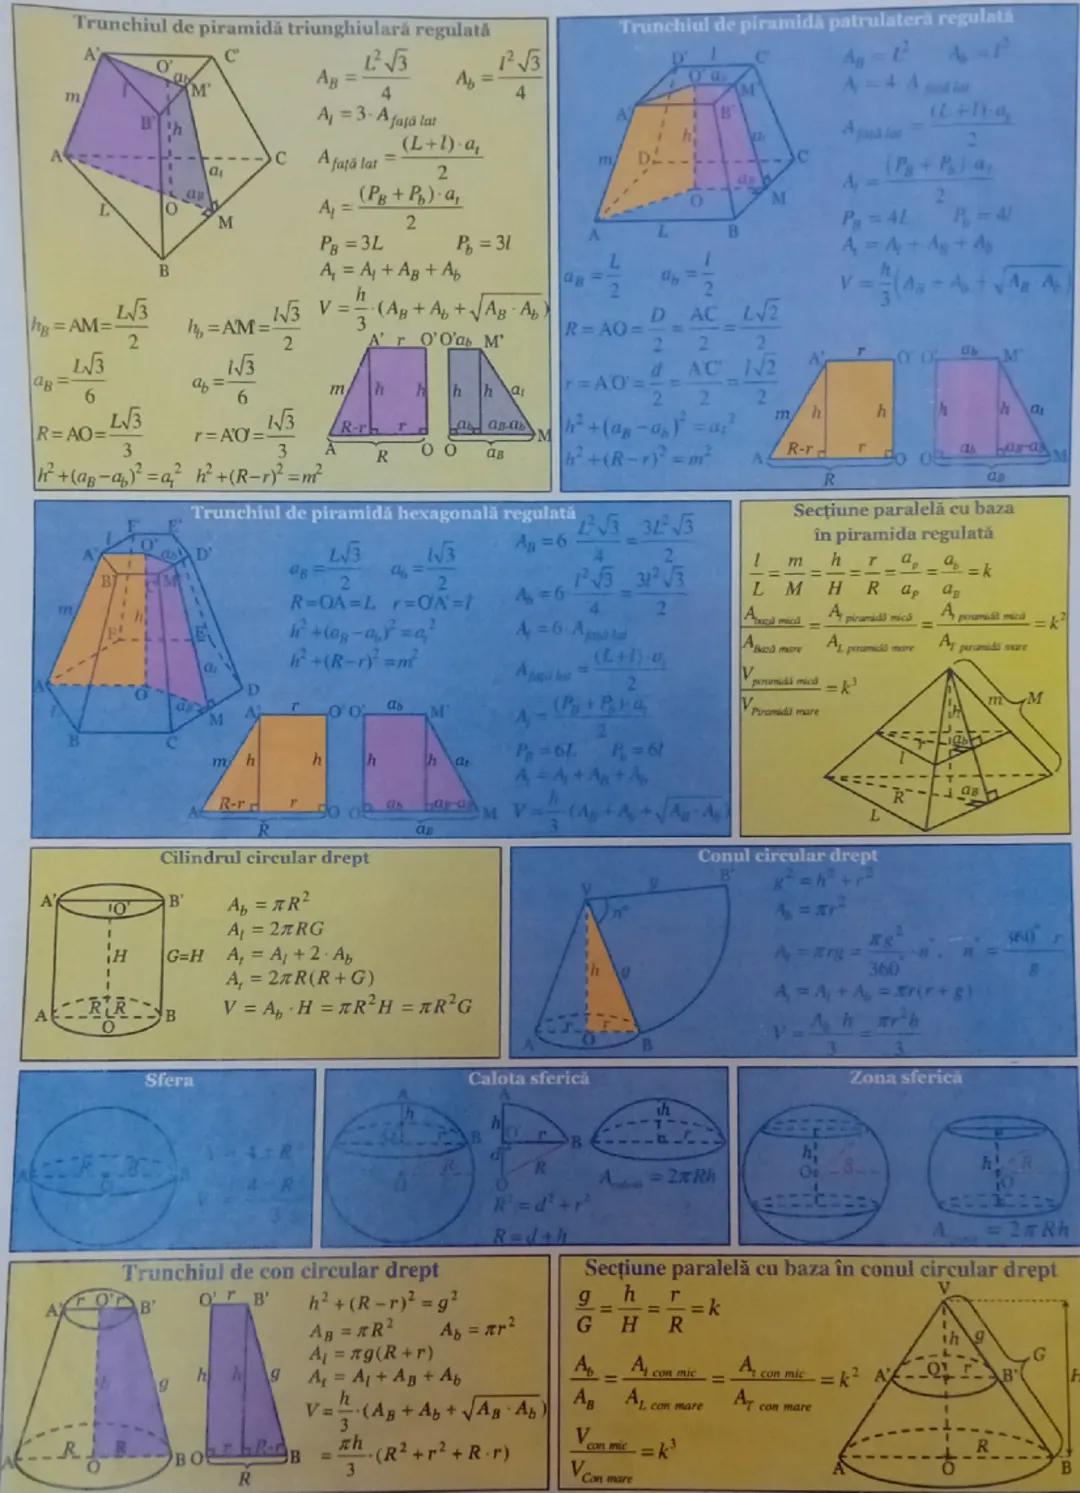 Trunchiul de piramidă triunghiulară regulată
A_B = L²√3/4   A_b = l²√3/4
A_l = 3·A_față lat
A_față lat = (L+l)·a_t/2
A_l = (P_B + P_b)·a_t/2
P_B = 3L   P_b = 3l
A_t = A_l + A_B + A_b
V = h/3·(A_B + A_b + √(A_B·A_b))
h_B = AM = L√3/2   h_b = A'M' = l√3/2
a_B = L√3/6   a_b = l√3/6
R = AO = L√3/3   r = A'O' = l√3/3
h² + (a_B − a_b)² = a_t²   h² + (R−r)² = m²
A' r O' O' a_b M'
m h h h h a_t
R-r r a_b a_B-a_b
A R O O a_B M
Trunchiul de piramidă patrulateră regulată
A_B = L²   A_b = l²
A_l = 4·A_față lat
A_față lat = (L+l)·a_t/2
A_l = (P_B + P_b)·a_t/2
P_B = 4L   P_b = 4l
A_t = A_l + A_B + A_b
V = h/3(A_B + A_b + √(A_B·A_b))
a_B = L/2   a_b = l/2
R = AO = D/2 = AC/2 = L√2/2
r = A'O' = d/2 = A'C'/2 = l√2/2
h² + (a_B − a_b)² = a_t²
h² + (R−r)² = m²
A' r O' O' a_b M'
m h h h a_t
R-r r a_b a_B-a_b
A R O O a_B M
Trunchiul de piramidă hexagonală regulată
a_B = L√3/2   a_b = l√3/2
R = OA = L   r = O'A' = l
h² + (a_B − a_b)² = a_t²
h² + (R−r)² = m²
A_B = 6·L²√3/4 = 3L²√3/2
A_b = 6·l²√3/4 = 3l²√3/2
A_l = 6·A_față lat
A_față lat = (L+l)·a_t/2
A_l = (P_B + P_b)·a_t/2
P_B = 6L   P_b = 6l
A_t = A_l + A_B + A_b
V = h/3·(A_B + A_b + √(A_B·A_b))
A' r O' O' a_b M'
m h h h h a_t
R-r r a_b a_B-a_b
A R O O a_B M
Secțiune paralelă cu baza
în piramida regulată
l/L = m/M = h/H = r/R = a_p/a_P = a_b/a_B = k
A_bază mică/A_Bază mare = A_l piramidă mică/A_L piramidă mare = A_t piramidă mică/A_T piramidă mare = k²
V_piramidă mică/V_Piramidă mare = k³
m M
h
r a_b
l
R a_B
L
Cilindrul circular drept
A' O' B'
H G=H
A R R B
O
A_b = πR²
A_l = 2πRG
A_t = A_l + 2·A_b
A_t = 2πR(R+G)
V = A_b·H = πR²H = πR²G
Conul circular drept
V g B'
n°
h g
r r
A O B
g² = h² + r²
A_b = πr²
A_l = πrg = πg²/360°·n°,   n° = 360°·r/g
A_t = A_l + A_b = πr(r+g)
V = A_b·h/3 = πr²h/3
Sfera
Calota sferică
A_calotă = 2πRh
R² = d² + r²
R = d + h
Zona sferică
= 2πRh
Trunchiul de con circular drept
A' r O' r B'
h g
A R R B
O
O' r B'
h h g
O r R-r B
R
h² + (R−r)² = g²
A_B = πR²   A_b = πr²
A_l = πg(R+r)
A_t = A_l + A_B + A_b
V = h/3·(A_B + A_b + √(A_B·A_b))
= πh/3·(R² + r² + R·r)
Secțiune paralelă cu baza în conul circular drept
g/G = h/H = r/R = k
A_b/A_B = A_l con mic/A_L con mare = A_t con mic/A_T con mare = k²
V_con mic/V_Con mare = k³
V
h g G
A' O' r B' H
R
A O B